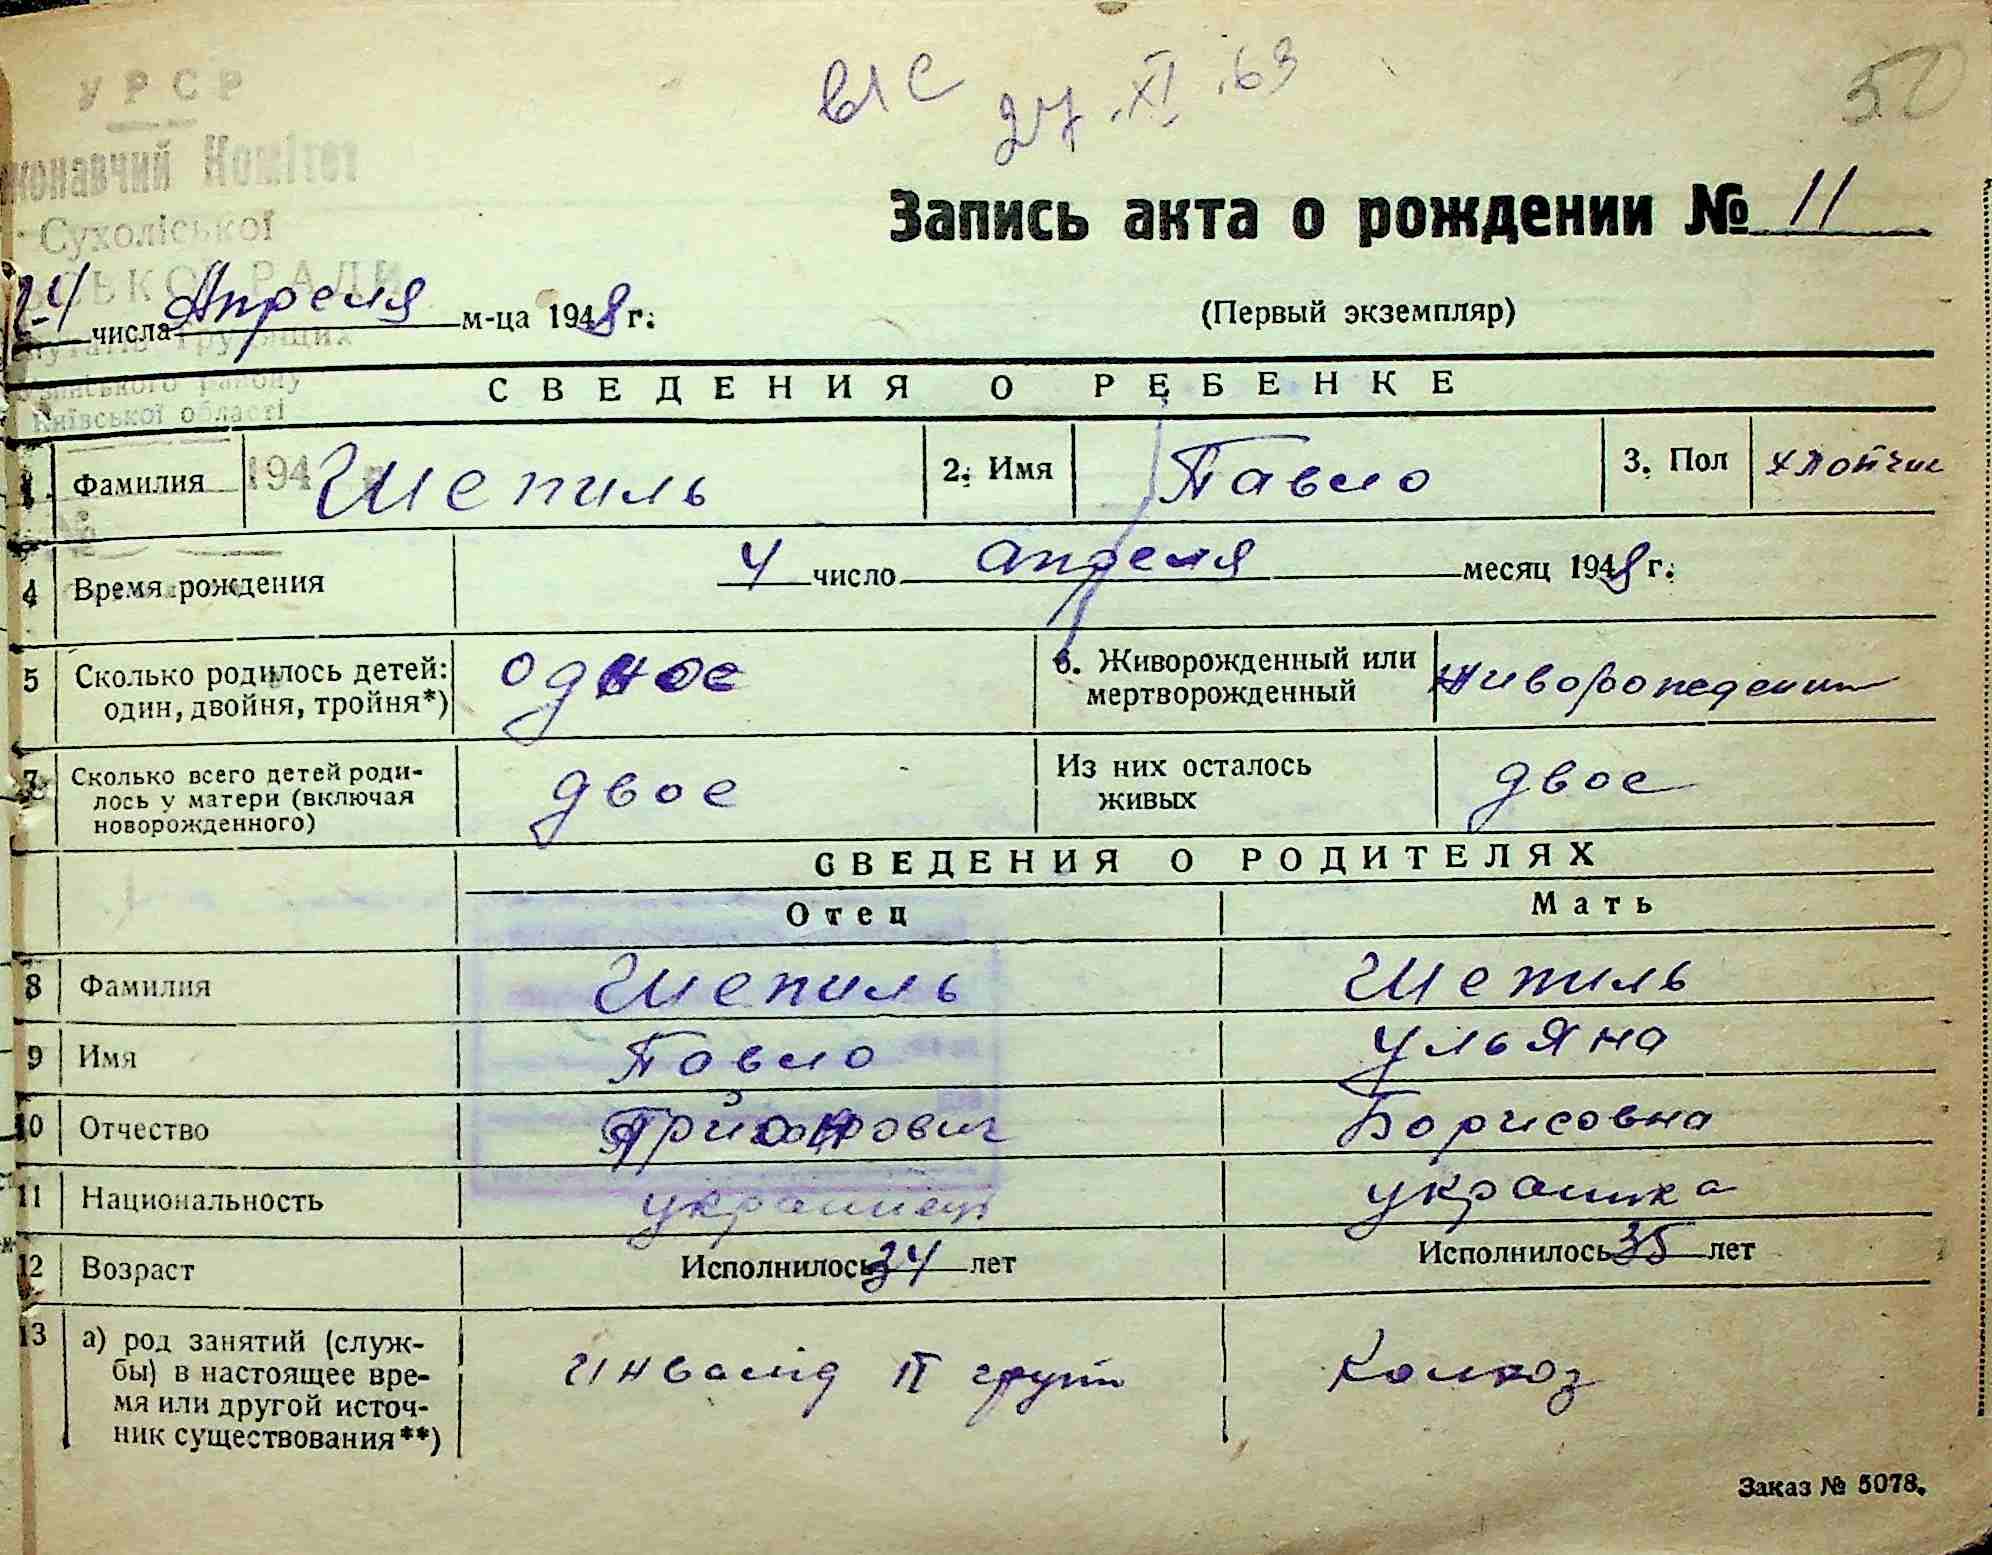 УРСР
в/с 27.XI.63
50
конавчий Комітет
Сухоліської
СЬКОЇ РАДИ
Запись акта о рождении № 11
24 числа Апреля м-ца 1948 г.
(Первый экземпляр)
путатів трудящих
району
Київської області
СВЕДЕНИЯ О РЕБЕНКЕ
1 Фамилия 194 Шепиль 2. Имя Павло 3. Пол хлопчик
№
4 Время рождения 4 число апреля месяц 1948 г.
5 Сколько родилось детей: одное 6. Живорожденный или живорожедений
один, двойня, тройня*) мертворожденный
7 Сколько всего детей роди- двое Из них осталось двое
лось у матери (включая живых
новорожденного)
СВЕДЕНИЯ О РОДИТЕЛЯХ
Отец Мать
8 Фамилия Шепиль Шепиль
9 Имя Павло Ульяна
10 Отчество Борисовна
11 Национальность украинец украинка
12 Возраст Исполнилось 34 лет Исполнилось 35 лет
13 а) род занятий (служ-
бы) в настоящее вре- Инвалид II групи Колхоз
мя или другой источ-
ник существования**)
Заказ № 5078.